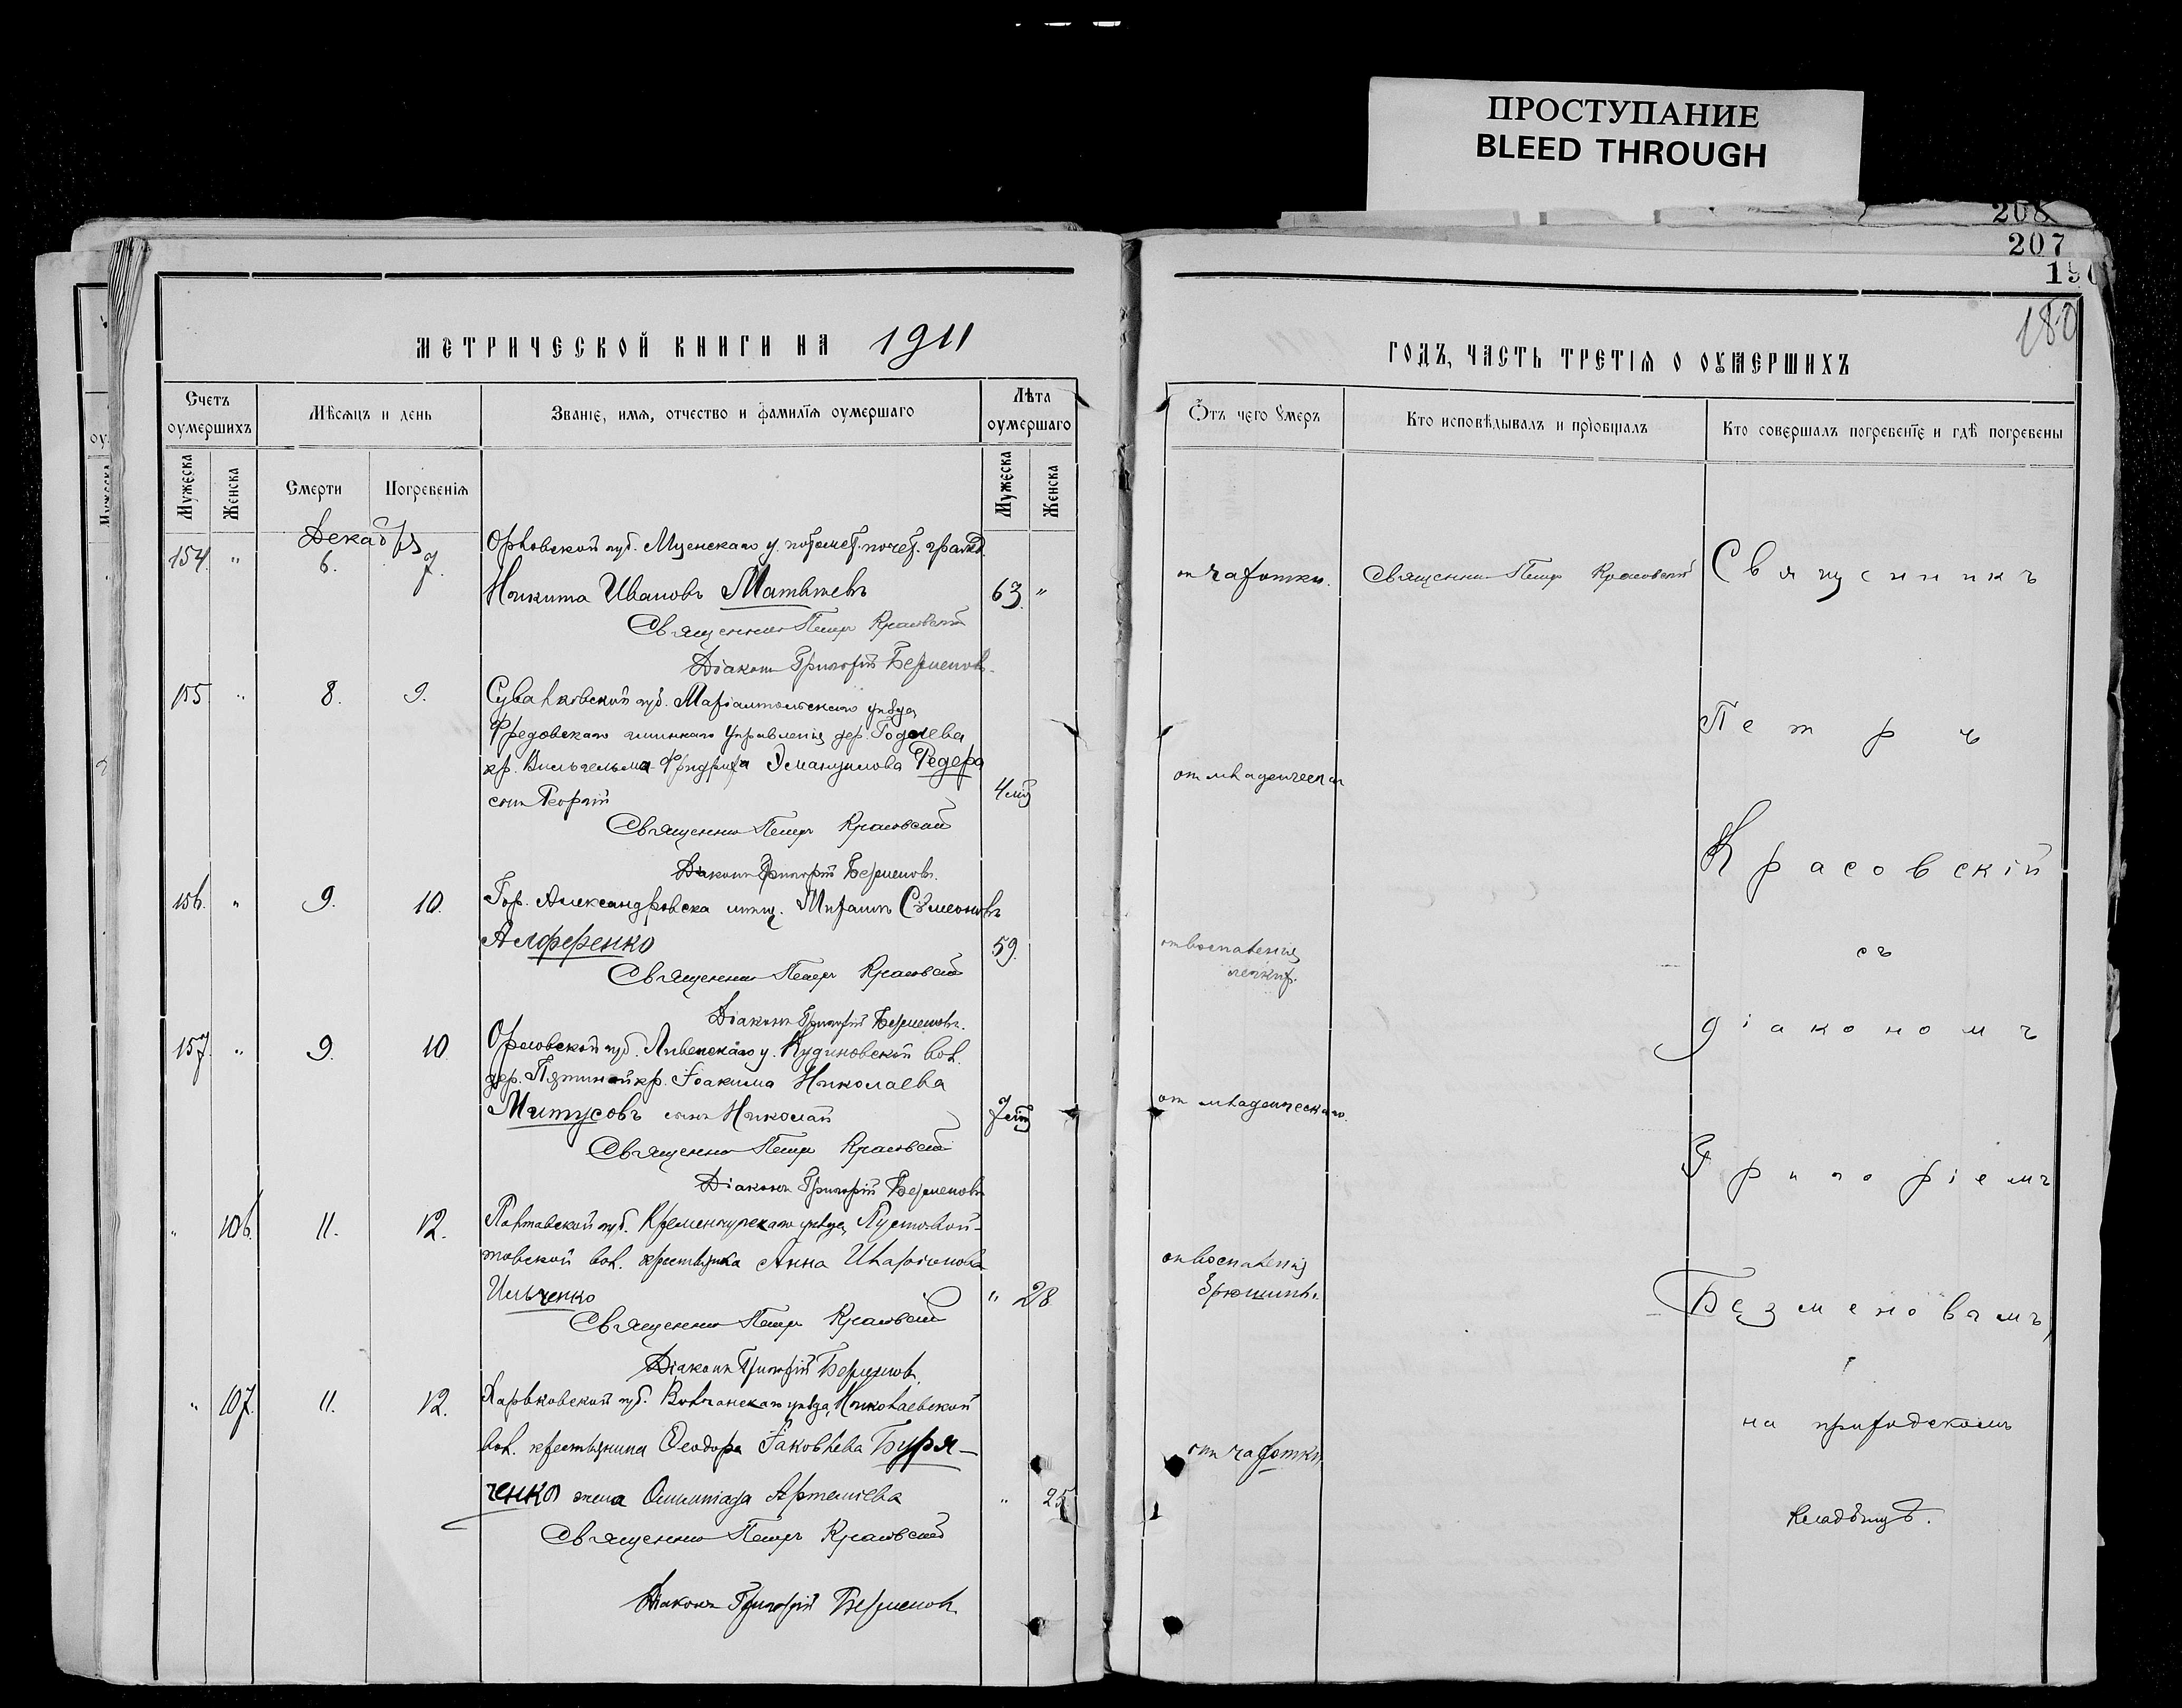 ПРОСТУПАНИЕ
BLEED THROUGH
208
207
190
180
МЕТРИЧЕСКОЙ КНИГИ НА 1911
ГОДЪ, ЧАСТЬ ТРЕТІЯ О ОУМЕРШИХЪ
Счетъ оумершихъ
Мѣсяцъ и день
Званіе, имя, отчество и фамилія оумершаго
Лѣта оумершаго
Отъ чего умеръ
Кто исповѣдывалъ и пріобщалъ
Кто совершалъ погребеніе и гдѣ погребены
Мужеска
Женска
Смерти
Погребенія
Мужеска
Женска
Декабрь
154. " 6. 7.
Орловской губ. Мценскаго у. потомст. почет. гражд.
Никита Ивановъ Матвѣевъ 63 "
Священникъ Петръ Красовскій
Діаконъ Григорій Безменовъ.
от чахотки.
Священникъ Петръ Красовскій
155 " 8. 9.
Сувалковской губ. Маріампольскаго уѣзда
Фредовскаго гминнаго управленія дер. Годлева
кр. Вильгельма-Фридриха Эмануилова Редера
сынъ Георгій 4 мѣс
Священникъ Петръ Красовскій
Діаконъ Григорій Безменовъ.
от младенческой
156. " 9. 10.
Гор. Александровска мѣщ. Михаилъ Сѵмеоновъ
Алференко 59.
Священникъ Петръ Красовскій
Діаконъ Григорій Безменовъ.
от воспаленія
легких.
157. " 9. 10.
Орловской губ. Ливенскаго у. Кудиновской вол.
дер. Пятиной кр. Іоакима Николаева
Митусовъ сынъ Николай 7 мѣс
Священникъ Петръ Красовскій
Діаконъ Григорій Безменовъ
от младенческаго.
" 106. 11. 12.
Полтавской губ. Кременчугскаго уѣзда, Пустовой-
товской вол. крестьянка Анна Иларіонова
Ильченко " 28
Священникъ Петръ Красовскій
Діаконъ Григорій Безменовъ.
от воспаленія
брюшины.
" 107. 11. 12.
Харьковской губ. Волчанскаго уѣзда, Николаевской
вол. крестьянина Ѳеодора Іаковлева Буря-
ченко жена Олимпіада Артеміева " 25
Священникъ Петръ Красовскій
Діаконъ Григорій Безменовъ
от чахотки
Священникъ
Петръ
Красовскій
съ
діакономъ
Григоріемъ
Безменовамъ,
на приходскомъ
кладбищѣ.